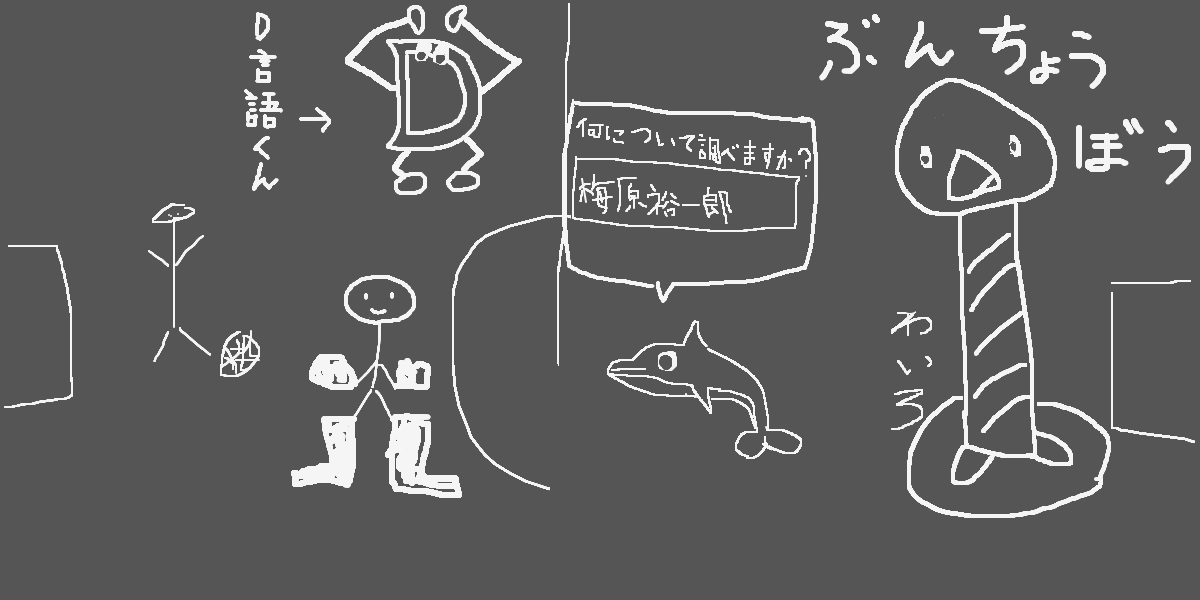 D言語くん
→
D
何について調べますか?
梅原裕一郎
ぶんちょう
ぼう
わいろ